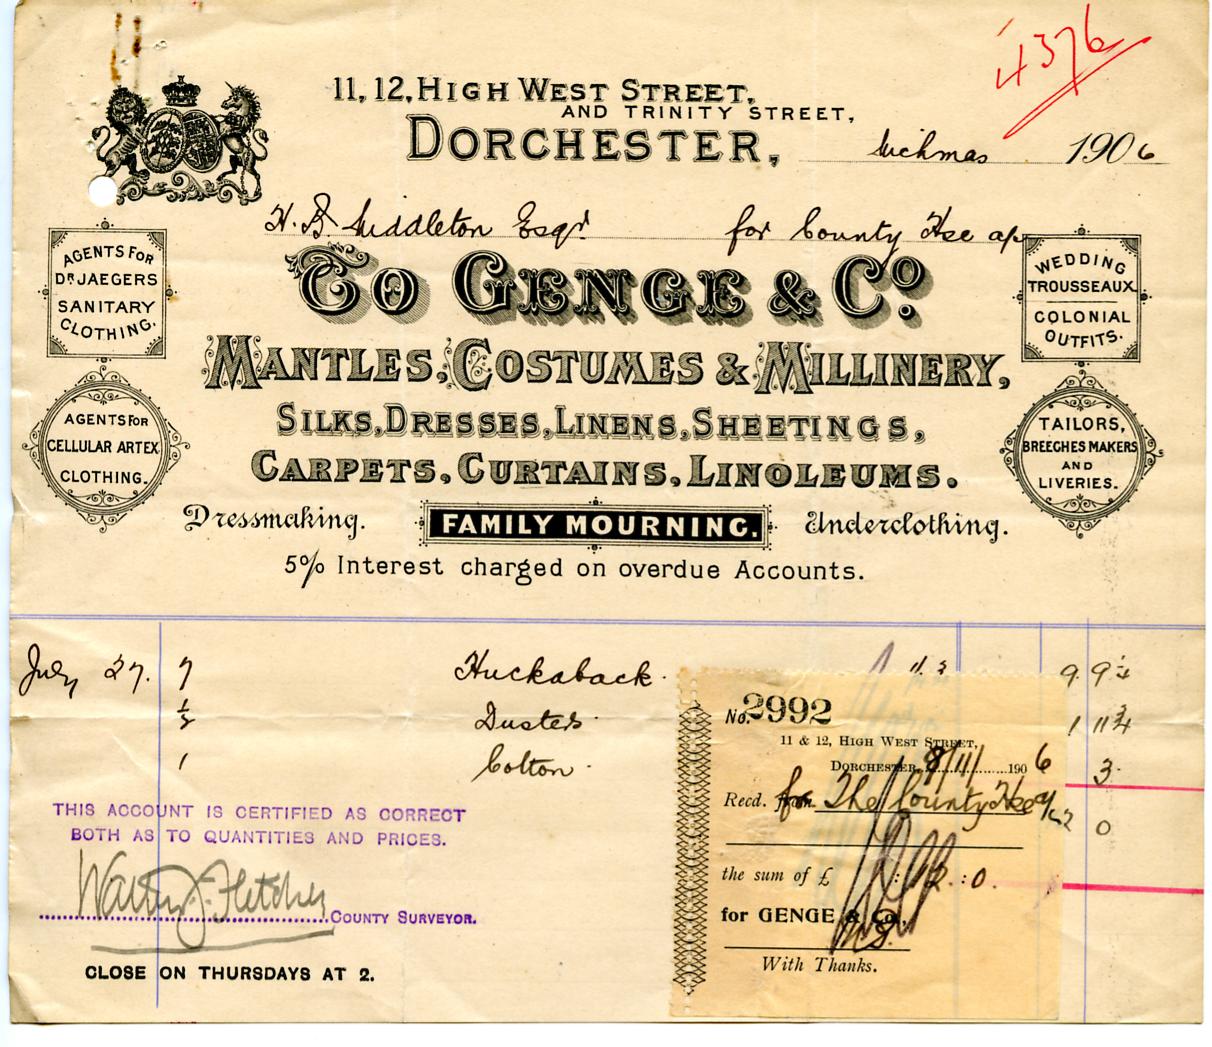 4376
11, 12, HIGH WEST STREET,
AND TRINITY STREET,
DORCHESTER, Michmas 1906
H. B. Middleton Esqr for County Hse a/c
AGENTS FOR
DR JAEGERS
SANITARY
CLOTHING.
TO GENGE & Co.
WEDDING
TROUSSEAUX
COLONIAL
OUTFITS.
MANTLES, COSTUMES & MILLINERY,
SILKS, DRESSES, LINENS, SHEETINGS,
CARPETS, CURTAINS, LINOLEUMS.
AGENTS FOR
CELLULAR ARTEX
CLOTHING.
TAILORS,
BREECHES MAKERS
AND
LIVERIES.
Dressmaking. FAMILY MOURNING. Underclothing.
5% Interest charged on overdue Accounts.
July 27. 7 Huckaback. 9. 9¼
½ Dusters 1 11¾
1 Cotton 3
0
THIS ACCOUNT IS CERTIFIED AS CORRECT
BOTH AS TO QUANTITIES AND PRICES.
Walter J. Fletcher
COUNTY SURVEYOR.
CLOSE ON THURSDAYS AT 2.
No. 2992
11 & 12, HIGH WEST STREET,
DORCHESTER, 8/11/ 1906
Recd. for The County Hse a/c
the sum of £ : 12 : 0
for GENGE & Co.,
With Thanks.